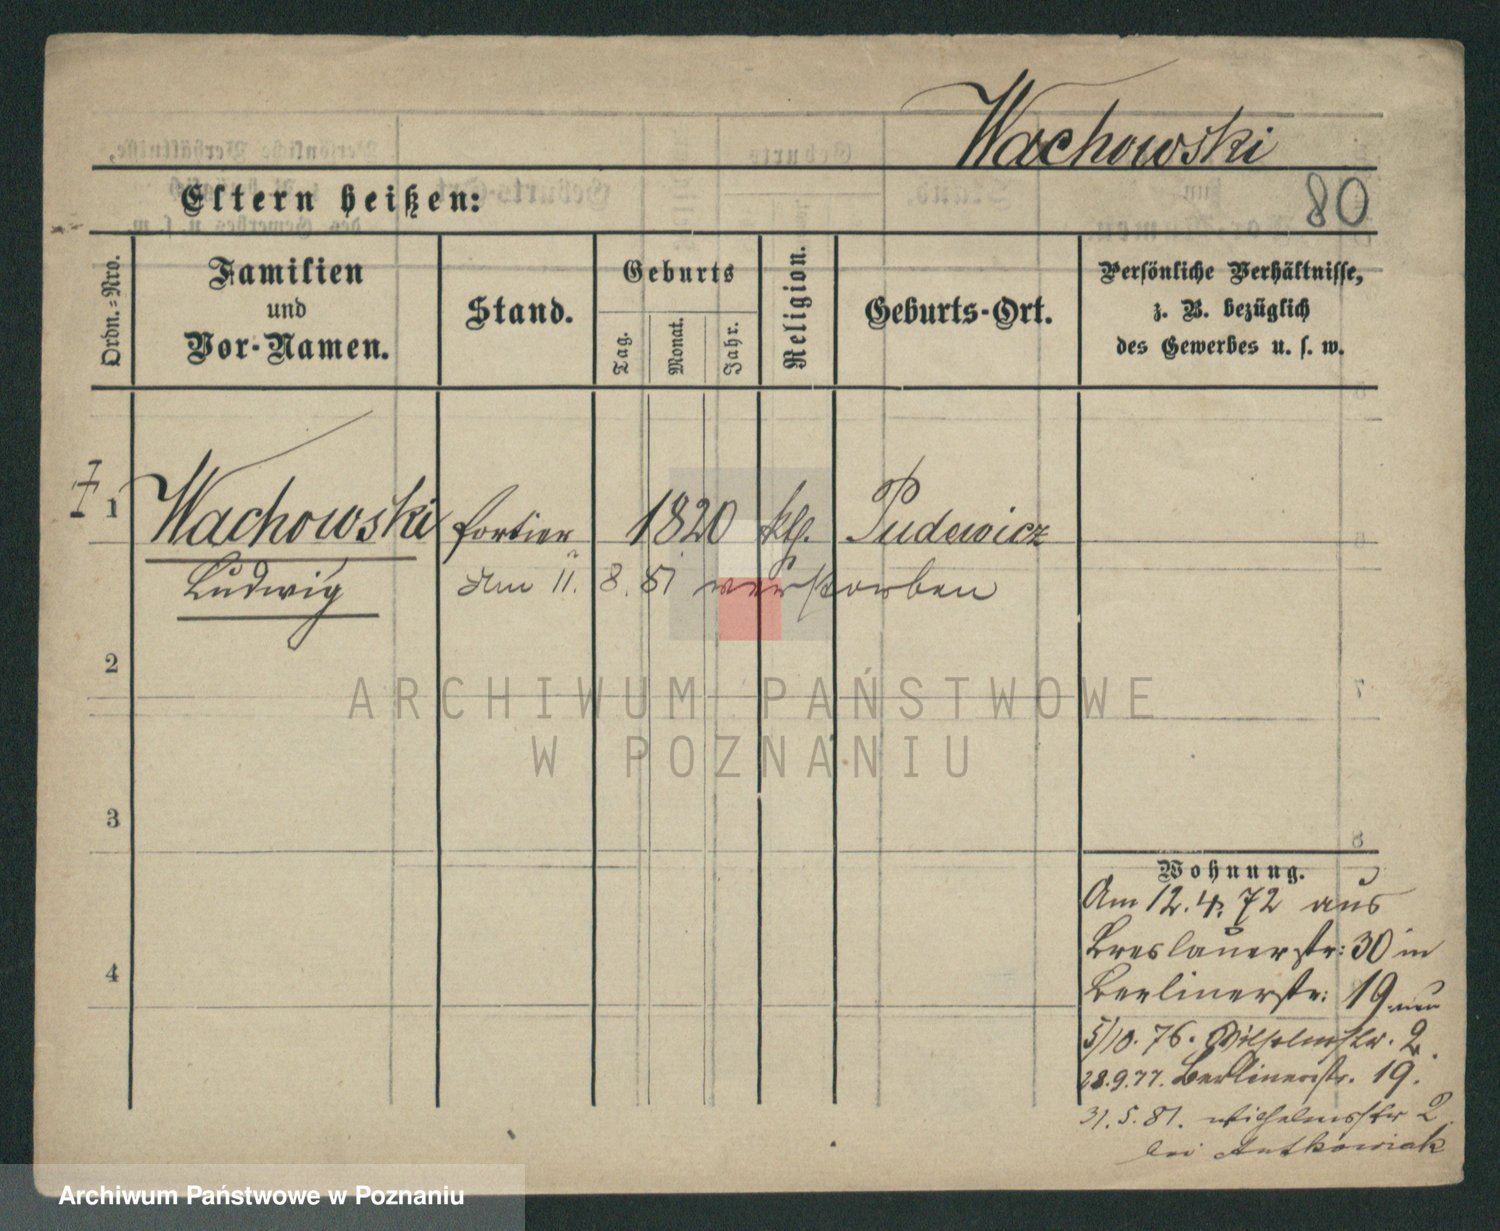 Wachowski
80
Eltern heißen:
Ordn.-Nro.
Familien
und
Vor-Namen.
Stand.
Geburts
Tag.
Monat.
Jahr.
Religion.
Geburts-Ort.
Persönliche Verhältnisse,
z. B. bezüglich
des Gewerbes u. s. w.
1 Wachowski Portier 1820 kth. Pudewicz
Ludwig Am 11. 8. 81 verstorben
2
3
4
Wohnung.
Am 12. 4. 72 aus
Breslauerstr: 30 in
Berlinerstr: 19 neu
5/10. 76. Wilhelmstr. 2.
28.9.77. Berlinerstr. 19.
31. 5. 81. Wilhelmsstr 2.
bei Antkowiak
ARCHIWUM PAŃSTWOWE
W POZNANIU
Archiwum Państwowe w Poznaniu